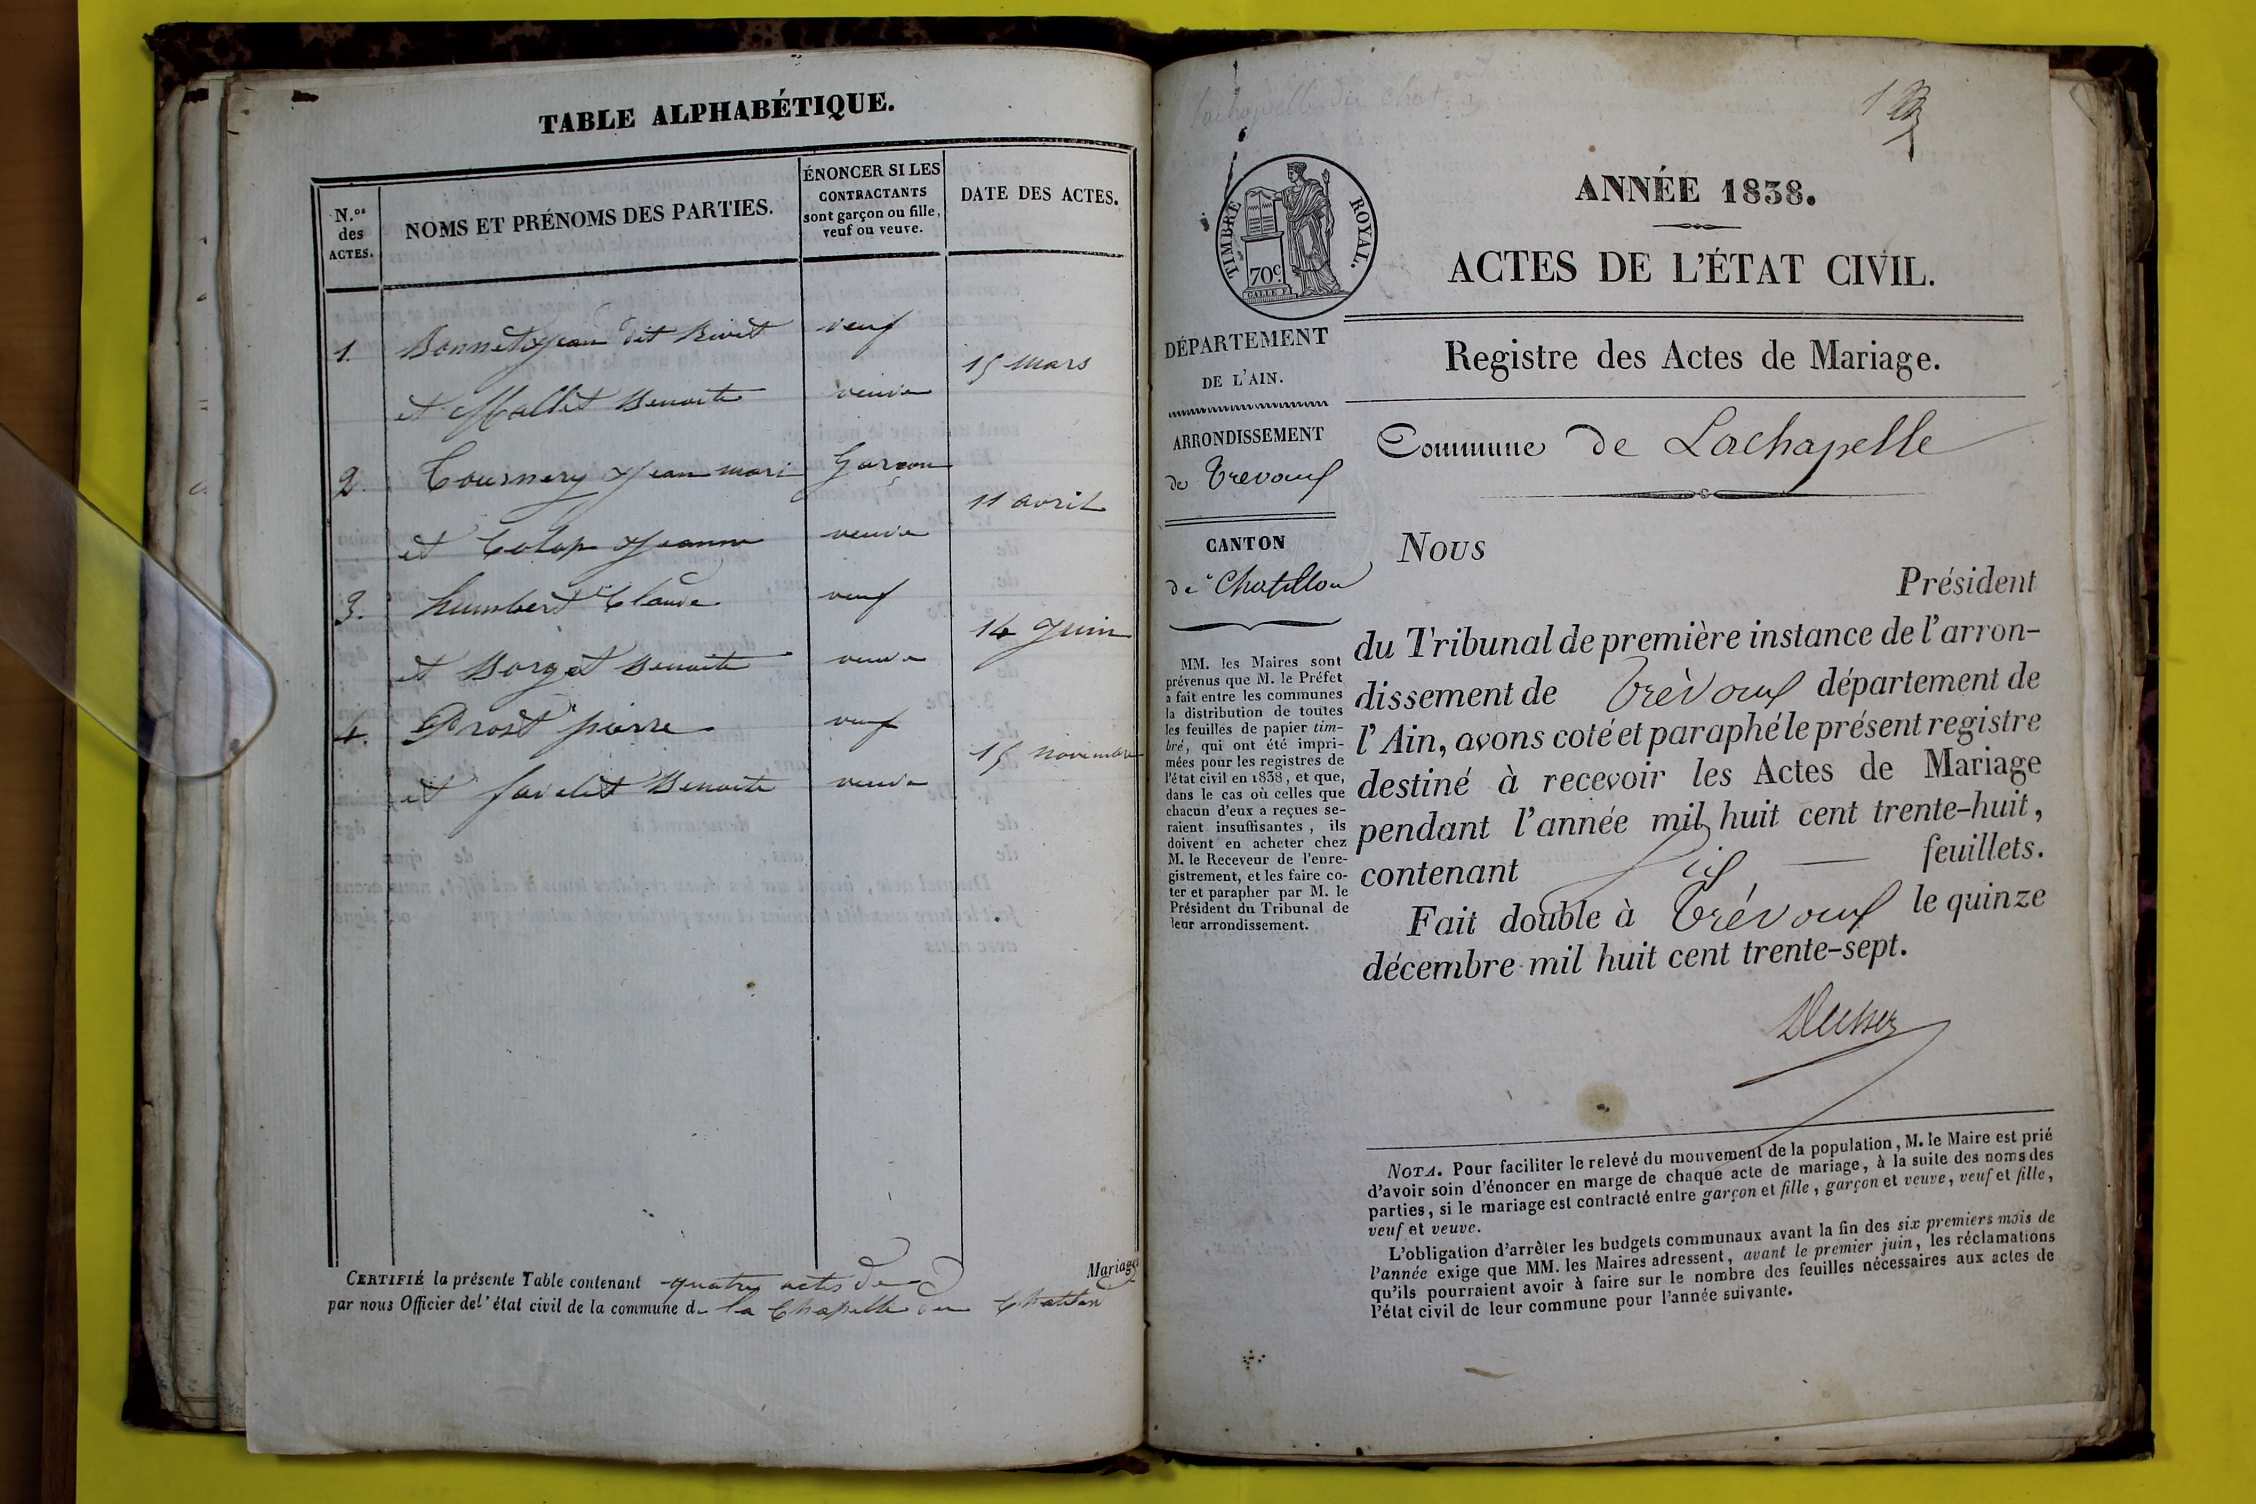 TABLE ALPHABÉTIQUE.
N.os des ACTES.
NOMS ET PRÉNOMS DES PARTIES.
ÉNONCER SI LES
CONTRACTANTS
sont garçon ou fille,
veuf ou veuve.
DATE DES ACTES.
1. Bonnet Jean dit Rivet veuf
15 mars
et Mallet Benoite veuve
2. Tournery Jean mari Garçon
11 avril
et Jeanne veuve
3. humbert Claude veuf
14 Juin
et Borget Benoite veuve
4. Prost pierre veuf
15 novembre
et favelet Benoite veuve
CERTIFIÉ la présente Table contenant quatre actes de Mariages
par nous Officier del'état civil de la commune de la Chapelle du Chatelard
lachapelle du chat
1
TIMBRE ROYAL.
70c
ANNÉE 1838.
ACTES DE L'ÉTAT CIVIL.
Registre des Actes de Mariage.
Commune de Lachapelle
DÉPARTEMENT
DE L'AIN.
ARRONDISSEMENT
de Trevoux
CANTON
de Chatillon
MM. les Maires sont
prévenus que M. le Préfet
a fait entre les communes
la distribution de toutes
les feuilles de papier tim-
bré, qui ont été impri-
mées pour les registres de
l'état civil en 1838, et que,
dans le cas où celles que
chacun d'eux a reçues se-
raient insuffisantes, ils
doivent en acheter chez
M. le Receveur de l'enre-
gistrement, et les faire co-
ter et parapher par M. le
Président du Tribunal de
leur arrondissement.
Nous
Président
du Tribunal de première instance de l'arron-
dissement de Trévoux département de
l'Ain, avons coté et paraphé le présent registre
destiné à recevoir les Actes de Mariage
pendant l'année mil huit cent trente-huit,
contenant six feuillets.
Fait double à Trévoux le quinze
décembre mil huit cent trente-sept.
NOTA. Pour faciliter le relevé du mouvement de la population, M. le Maire est prié
d'avoir soin d'énoncer en marge de chaque acte de mariage, à la suite des noms des
parties, si le mariage est contracté entre garçon et fille, garçon et veuve, veuf et fille,
veuf et veuve.
L'obligation d'arrêter les budgets communaux avant la fin des six premiers mois de
l'année exige que MM. les Maires adressent, avant le premier juin, les réclamations
qu'ils pourraient avoir à faire sur le nombre des feuilles nécessaires aux actes de
l'état civil de leur commune pour l'année suivante.